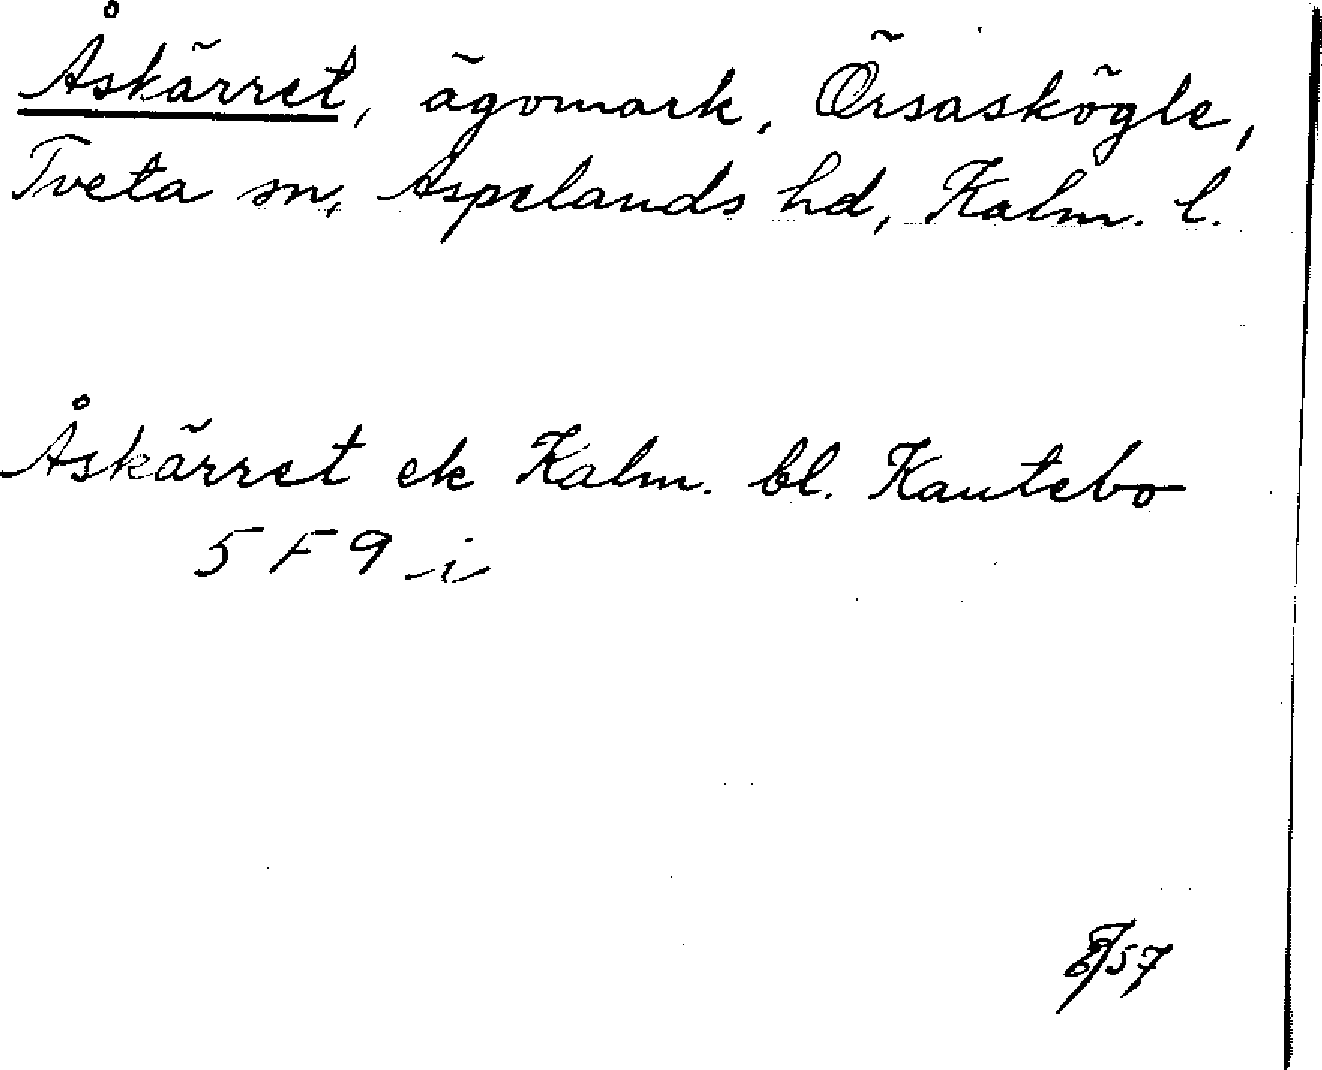 Åskärret, ägomark, Örsaskögle,
Tveta sn, Aspelands hd, Kalm. l.
Åskärret ek Kalm. bl. Kautebo
5 F 9 i